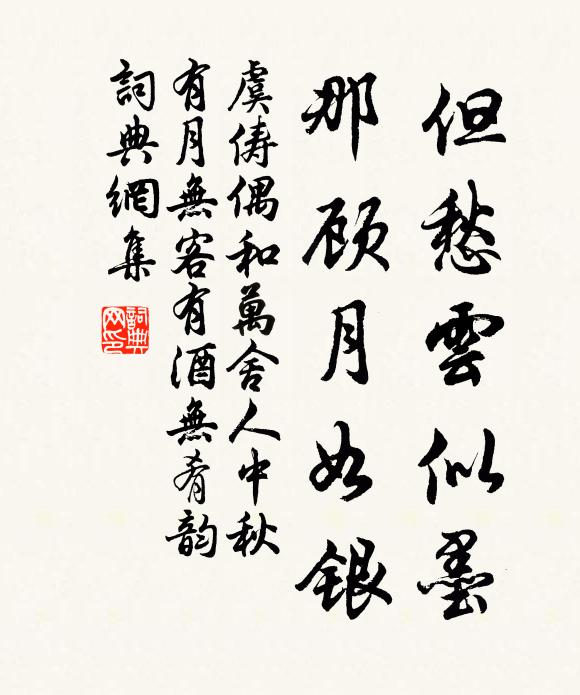 但愁雲似墨
那顾月如銀
虞儔偶和萬舍人中秋
有月無客有酒無肴韵
詞典網集
詞典网印